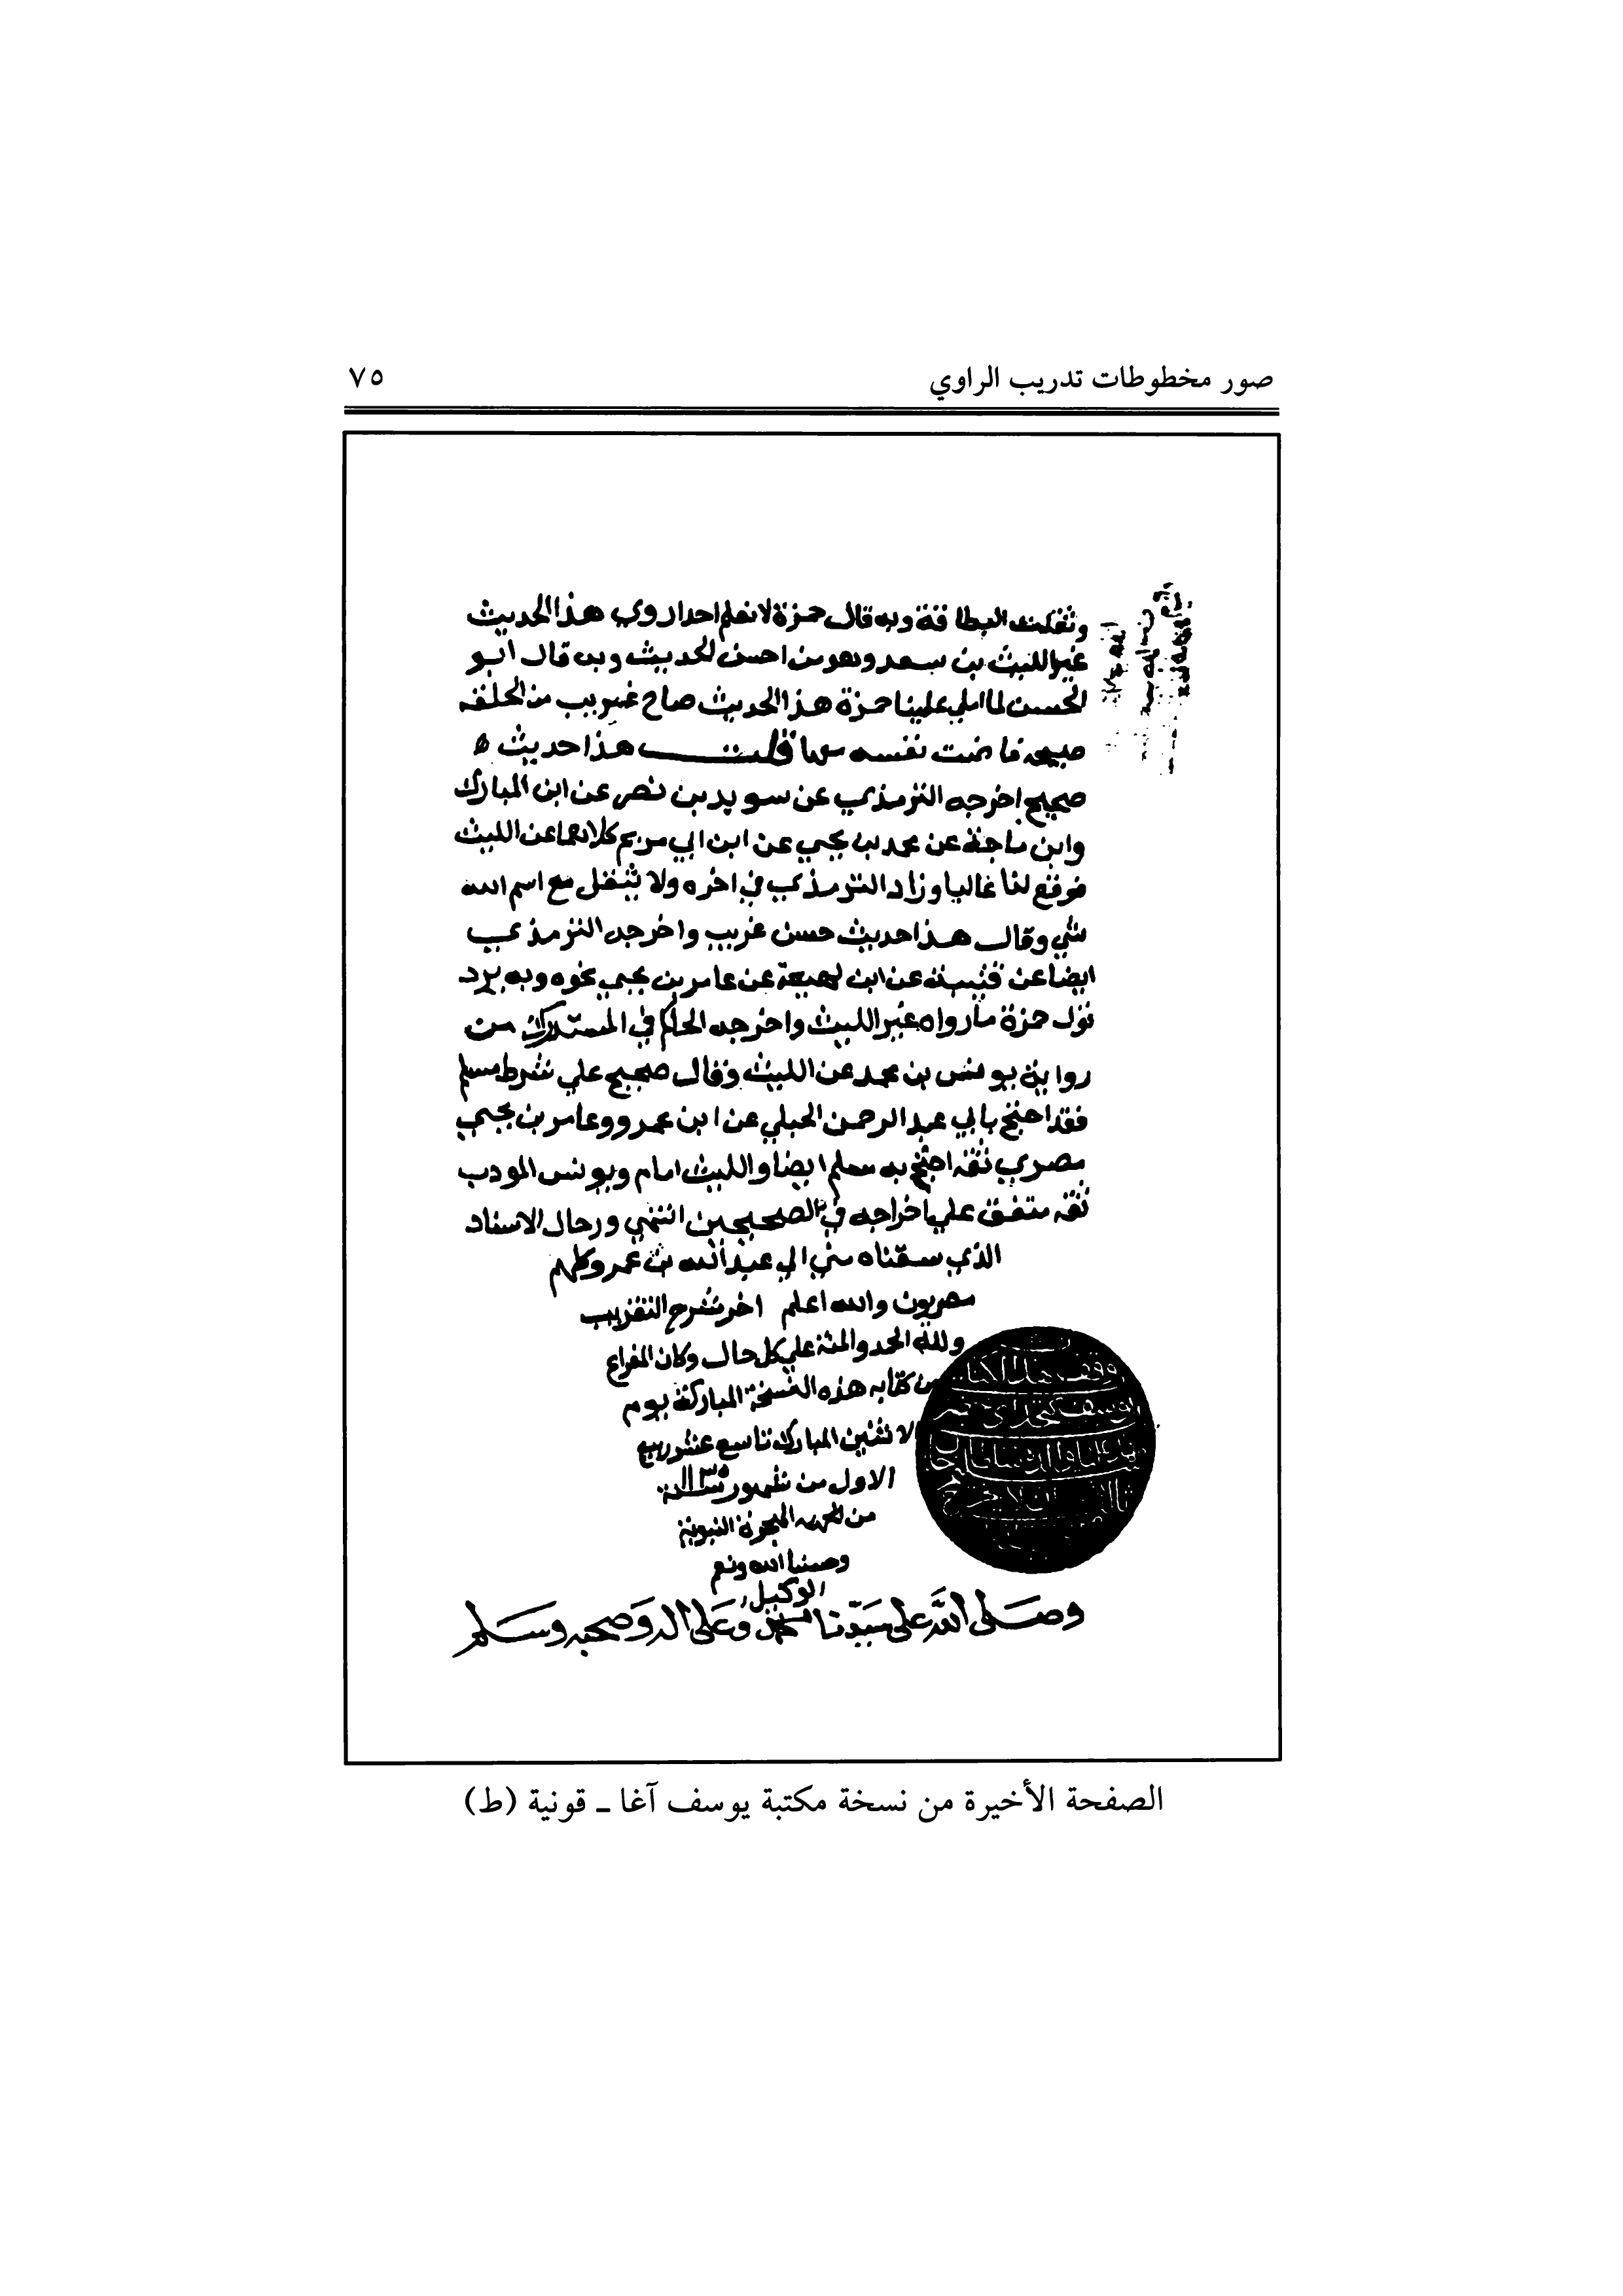 صور مخطوطات تدريب الراوي ٧٥
وثقلت البطاقة وبه قال حمزة لا نعلم احدا روى هذا الحديث
غير الليث بن سعد وهو من احسن الحديث وبه قال ابو
الحسن لما املي علينا حمزة هذا الحديث صاح غريب من الحلقه
صيحه فاضت نفسه معها قلت هذا حديث ه
صحيح اخرجه الترمذي عن سويد بن نصر عن ابن المبارك
وابن ماجة عن محمد بن يحيي عن ابن ابي مريم كلاهما عن الليث
فوقع لنا عاليا وزاد الترمذي في اخره ولا يثقل مع اسم الله
شي وقال هذا حديث حسن غريب واخرجه الترمذي
ايضا عن قتيبة عن ابن لهيعة عن عامر بن يحيي نحوه وبه يرد
قول حمزة ما رواه غير الليث واخرجه الحاكم في المستدرك من
رواية يونس بن محمد عن الليث وقال صحيح علي شرط مسلم
فقد احتج بابي عبد الرحمن الحبلي عن ابن عمرو وعامر بن يحيي
مصري ثقه احتج به مسلم ايضا والليث امام ويونس المودب
ثقه متفق علي اخراجه في الصحيحين انتهي ورجال الاسناد
الذي سقناه مني الي عبد الله بن عمرو كلهم
مصريون والله اعلم اخر شرح التقريب
ولله الحمد والمنة علي كل حال وكان الفراغ
من كتابه هذه النسخة المباركة يوم
الاثنين المبارك تاسع عشر ربيع
الاول من شهور سنة
من الهجرة النبوية
وحسبنا الله ونعم
الوكيل
وصلى الله على سيدنا محمد وعلى اله وصحبه وسلم
الصفحة الأخيرة من نسخة مكتبة يوسف آغا ـ قونية (ط)